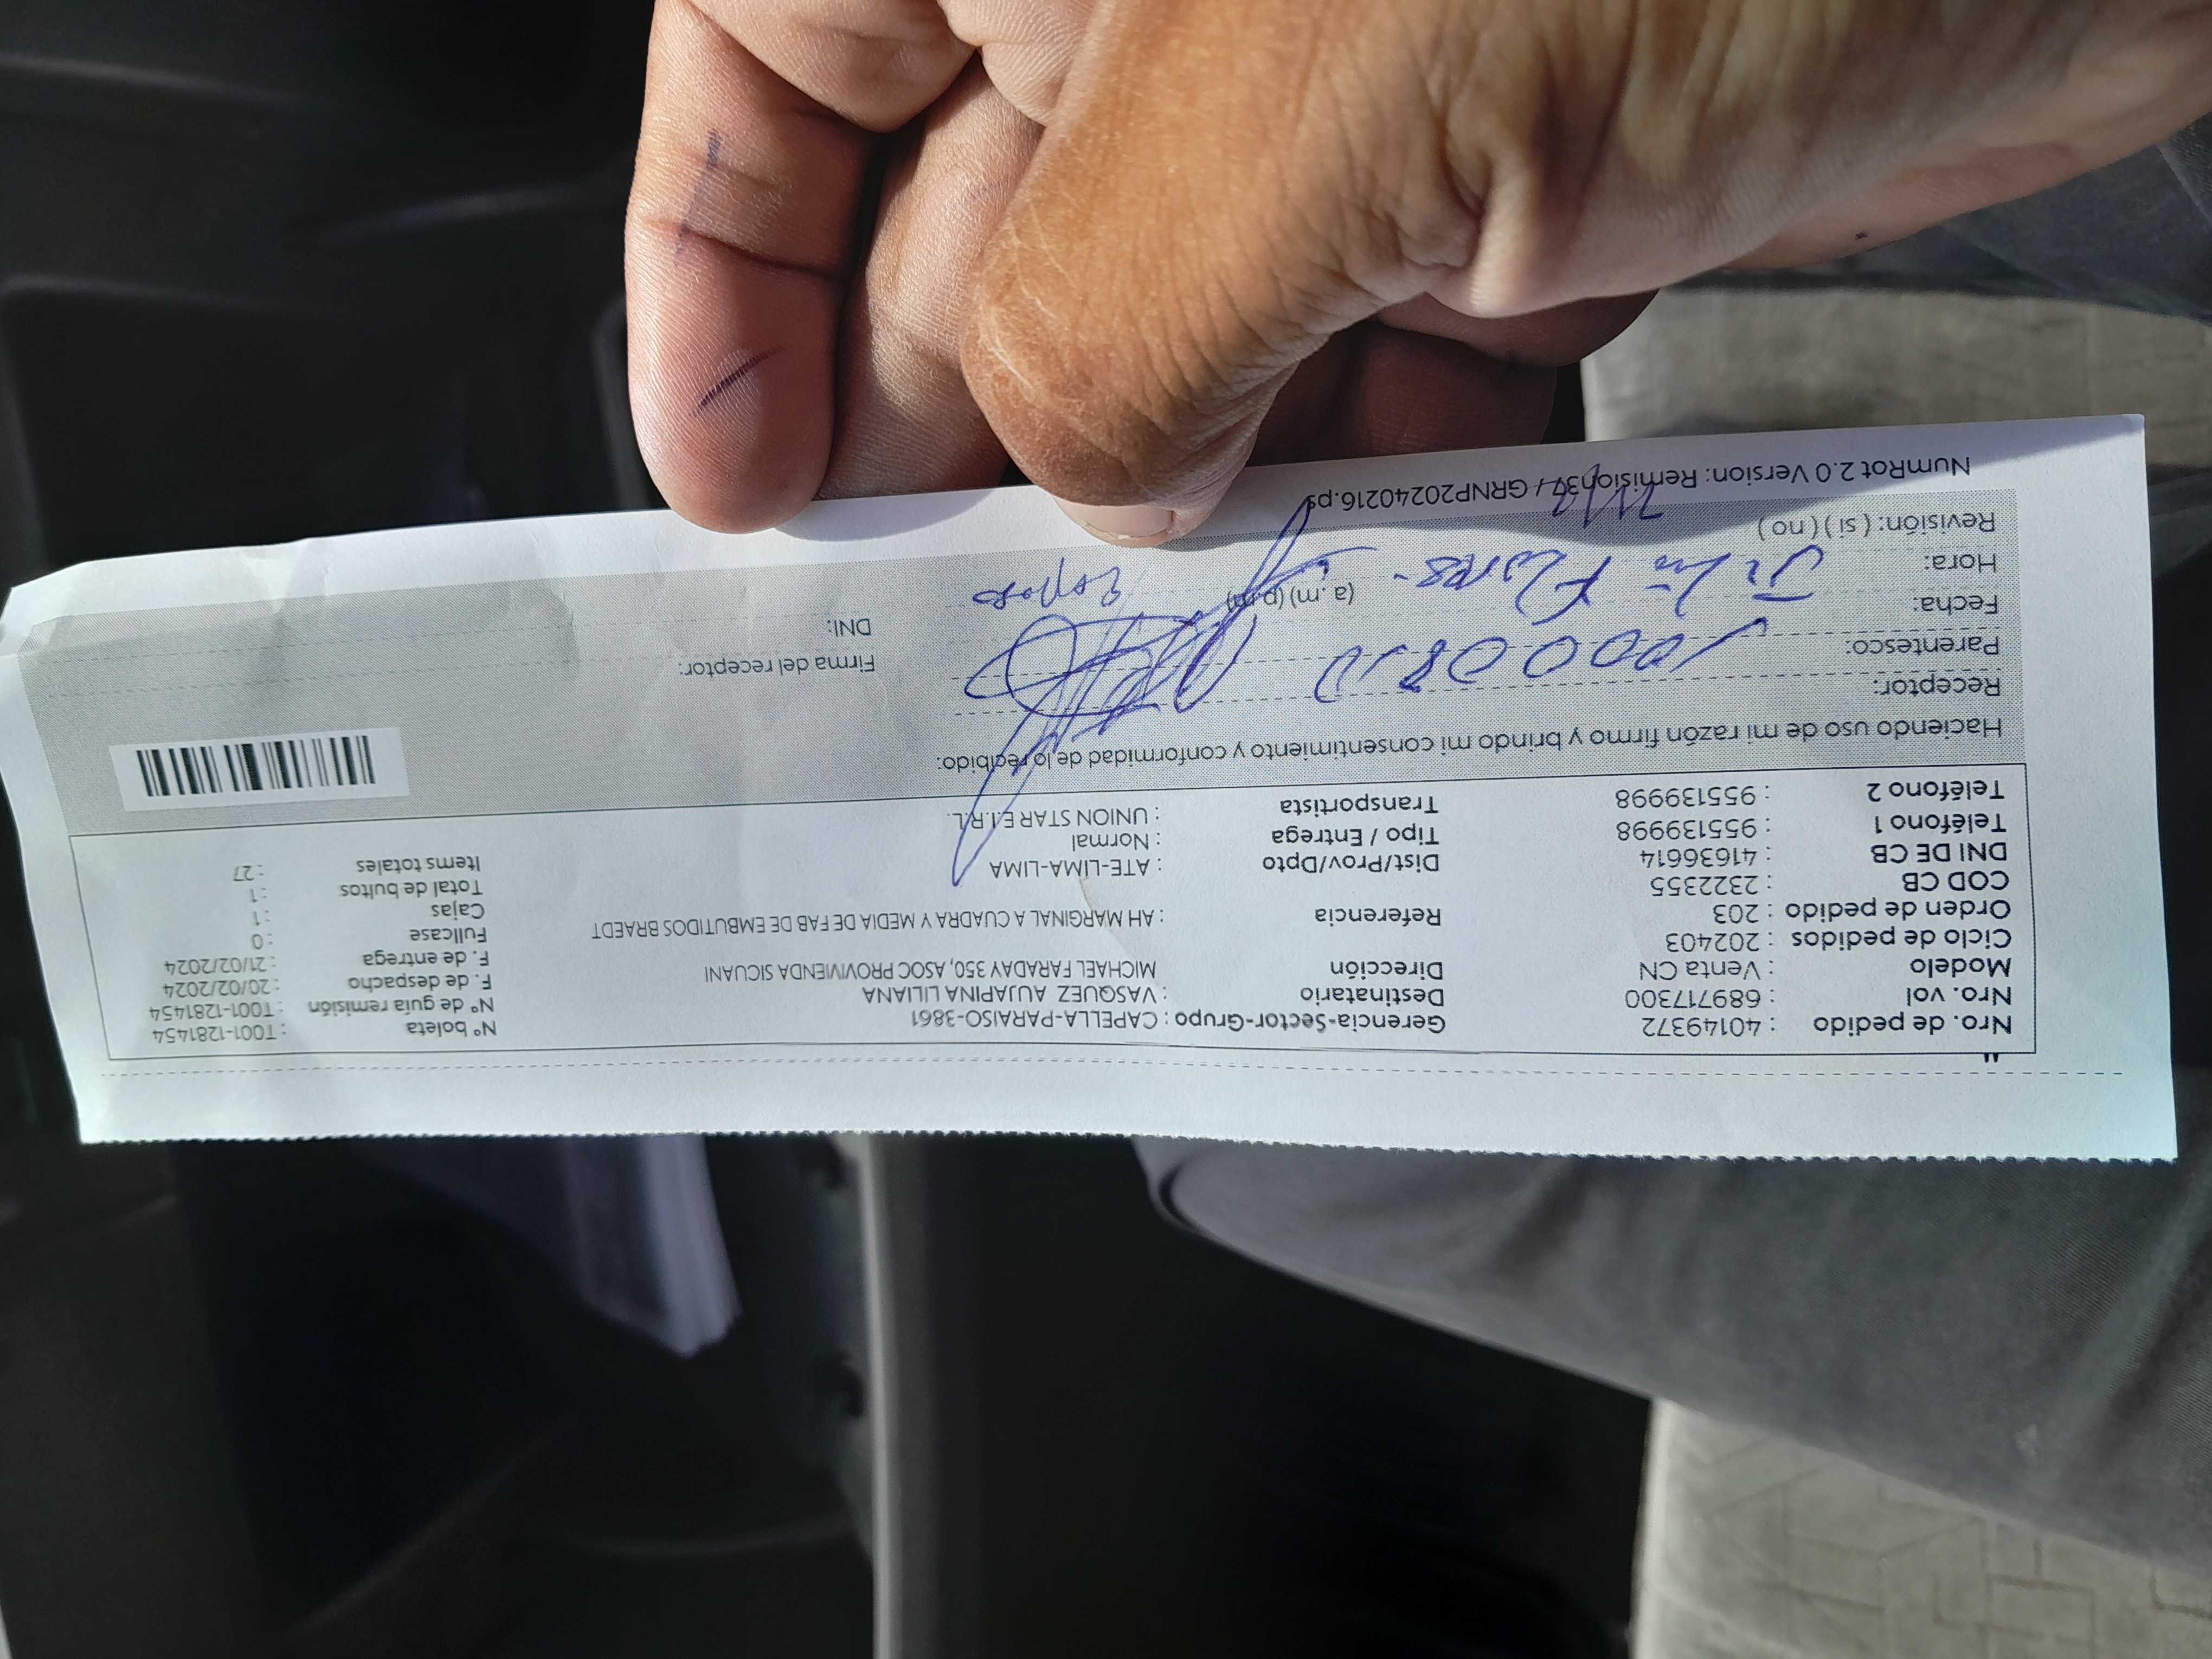 Nro. de pedido : 40149372 Gerencia-Sector-Grupo : CAPELLA-PARAISO-3861 N° boleta : T001-1281454
Nro. vol : 689717300 Destinatario : VASQUEZ AUJAPINA LILIANA N° de guía remisión : T001-1281454
Modelo : Venta CN Dirección MICHAEL FARADAY 350, ASOC PROVIVIENDA SICUANI F. de despacho : 20/02/2024
Ciclo de pedidos : 202403 F. de entrega : 21/02/2024
Orden de pedido : 203 Referencia : AH MARGINAL A CUADRA Y MEDIA DE FAB DE EMBUTIDOS BRAEDT Fullcase : 0
COD CB : 2322355 Cajas : 1
DNI DE CB : 41636614 Dist/Prov/Dpto : ATE-LIMA-LIMA Total de bultos : 1
Teléfono 1 : 955139998 Tipo / Entrega : Normal Items totales : 27
Teléfono 2 : 955139998 Transportista : UNION STAR E.I.R.L.
Haciendo uso de mi razón firmo y brindo mi consentimiento y conformidad de lo recibido:
Receptor:
Parentesco: Firma del receptor:
Fecha: DNI:
Hora: (a.m) (p.m)
Flores
Revisión: ( si ) ( no )
NumRot 2.0 Version: Remision37 / GRNP20240216.ps